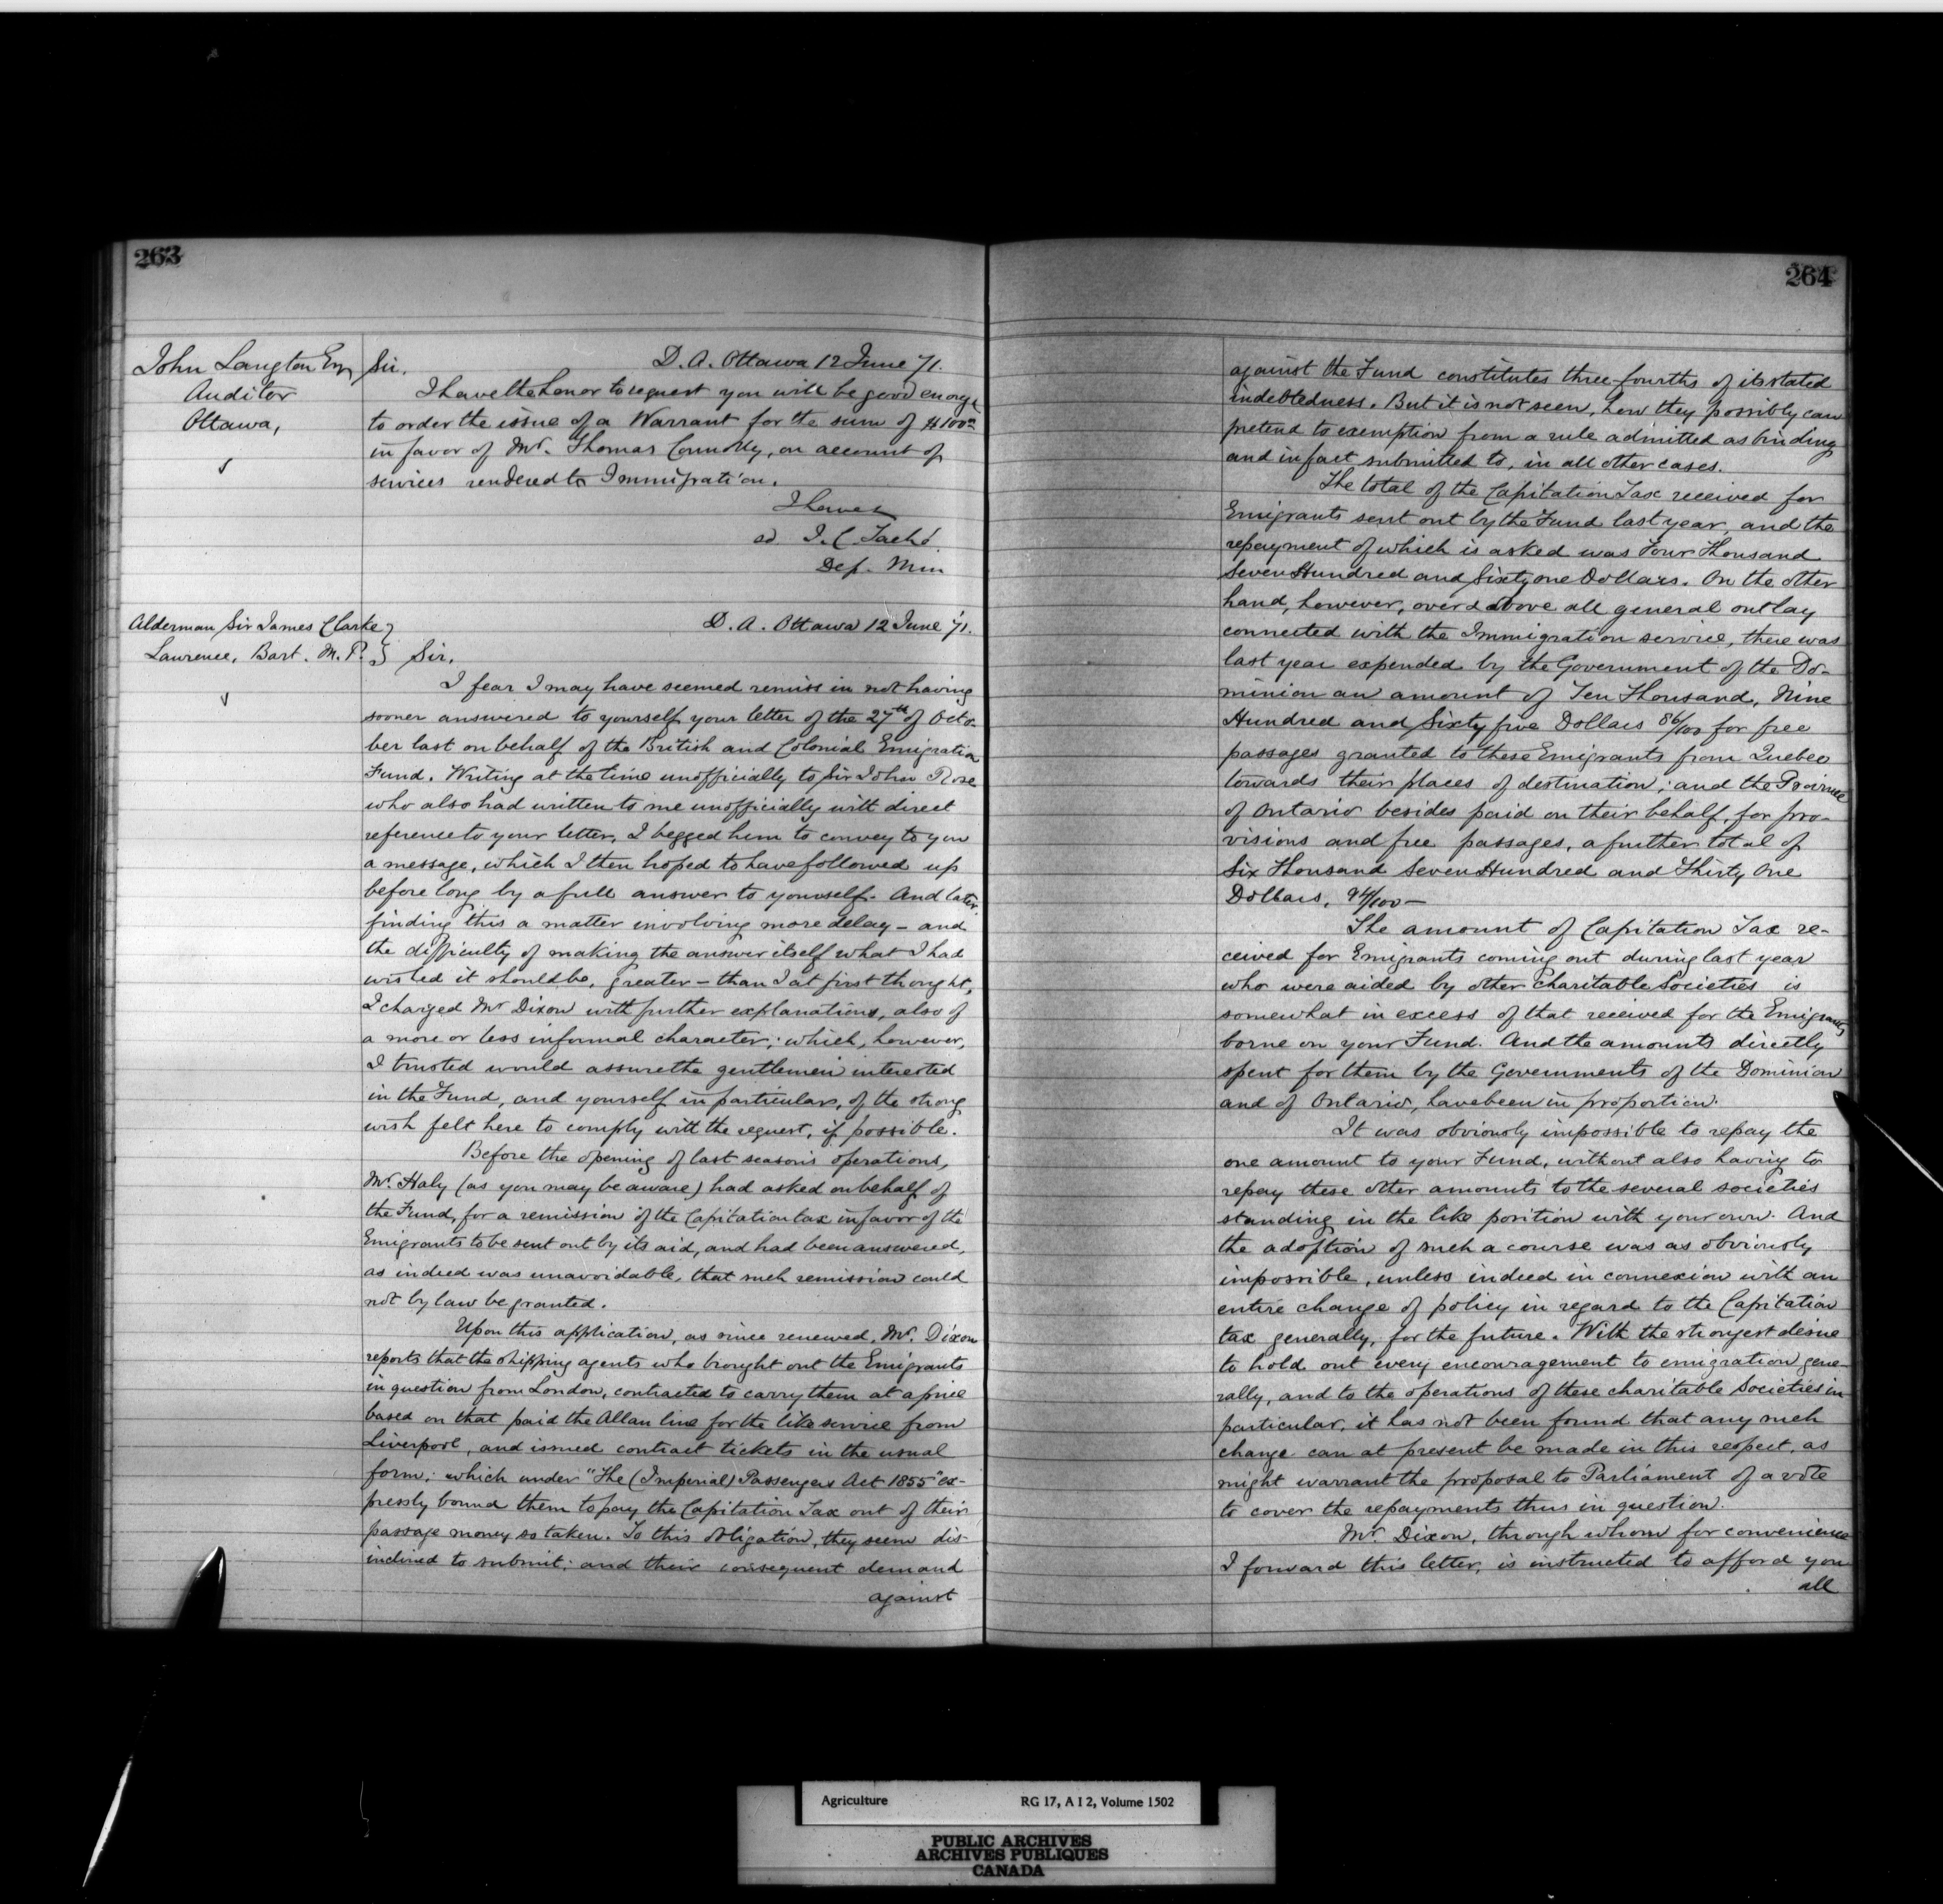 263
John Langton Esq
Auditor
Ottawa,
Sir.
D. A. Ottawa 12 June 71.
I have the honor to request you will be good enough
to order the issue of a Warrant for the sum of $100
in favor of Mr. Thomas Connolly, on account of
services rendered to Immigration.
I have
sd. J. C. Taché.
Dep. Min
Alderman Sir James Clarke }
Lawrence, Bart. M. P. }
D. A. Ottawa 12 June 71.
Sir.
I fear I may have seemed remiss in not having
sooner answered to yourself your letter of the 27th of Octo-
ber last on behalf of the British and Colonial Emigration
Fund. Writing at the time unofficially to Sir John Rose
who also had written to me unofficially with direct
reference to your letter, I begged him to convey to you
a message, which I then hoped to have followed up
before long by a full answer to yourself. And later,
finding this a matter involving more delay – and
the difficulty of making the answer itself what I had
wished it should be, greater – than I at first thought,
I charged Mr Dixon with further explanations, also of
a more or less informal character; which, however,
I trusted would assure the gentlemen interested
in the Fund, and yourself in particular, of the strong
wish felt here to comply with the request, if possible.
Before the opening of last season's operations,
Mr. Haly (as you may be aware) had asked on behalf of
the Fund, for a remission of the Capitation tax in favor of the
Emigrants to be sent out by its aid, and had been answered,
as indeed was unavoidable, that such remission could
not by law be granted.
Upon this application, as since renewed, Mr. Dixon
reports that the shipping agents who brought out the Emigrants
in question from London, contracted to carry them at a price
based on that paid the Allan line for the like service from
Liverpool, and issued contract tickets in the usual
form; which under "The (Imperial) Passengers Act 1855" ex-
pressly bound them to pay the Capitation Tax out of their
passage money so taken. To this obligation, they seem dis-
inclined to submit; and their consequent demand
against
264
against the Fund constitutes three-fourths of its stated
indebtedness. But it is not seen, how they possibly can
pretend to exemption from a rule admitted as binding
and in fact submitted to, in all other cases.
The total of the Capitation Tax received for
Emigrants sent out by the Fund last year, and the
repayment of which is asked was Four Thousand
Seven Hundred and Sixty one Dollars. On the other
hand, however, over & above all general outlay
connected with the Immigration service, there was
last year expended by the Government of the Do-
minion an amount of Ten Thousand, Nine
Hundred and Sixty five Dollars 86/100 for free
passages granted to these Emigrants from Quebec
towards their places of destination; and the Province
of Ontario besides paid on their behalf, for pro-
visions and free passages, a further total of
Six Thousand Seven Hundred and Thirty One
Dollars, 94/100 –
The amount of Capitation Tax re-
ceived for Emigrants coming out during last year
who were aided by other Charitable Societies is
somewhat in excess of that received for the Emigrants
borne on your Fund. And the amounts directly
spent for them by the Governments of the Dominion
and of Ontario, have been in proportion.
It was obviously impossible to repay the
one amount to your Fund, without also having to
repay these other amounts to the several societies
standing in the like position with your own. And
the adoption of such a course was as obviously
impossible, unless indeed in connexion with an
entire change of policy in regard to the Capitation
tax generally, for the future. With the strongest desire
to hold out every encouragement to emigration gene-
rally, and to the operations of these charitable Societies in
particular, it has not been found that any such
change can at present be made in this respect, as
might warrant the proposal to Parliament of a vote
to cover the repayments thus in question.
Mr. Dixon, through whom for convenience
I forward this letter, is instructed to afford you
all
Agriculture RG 17, A I 2, Volume 1502
PUBLIC ARCHIVES
ARCHIVES PUBLIQUES
CANADA